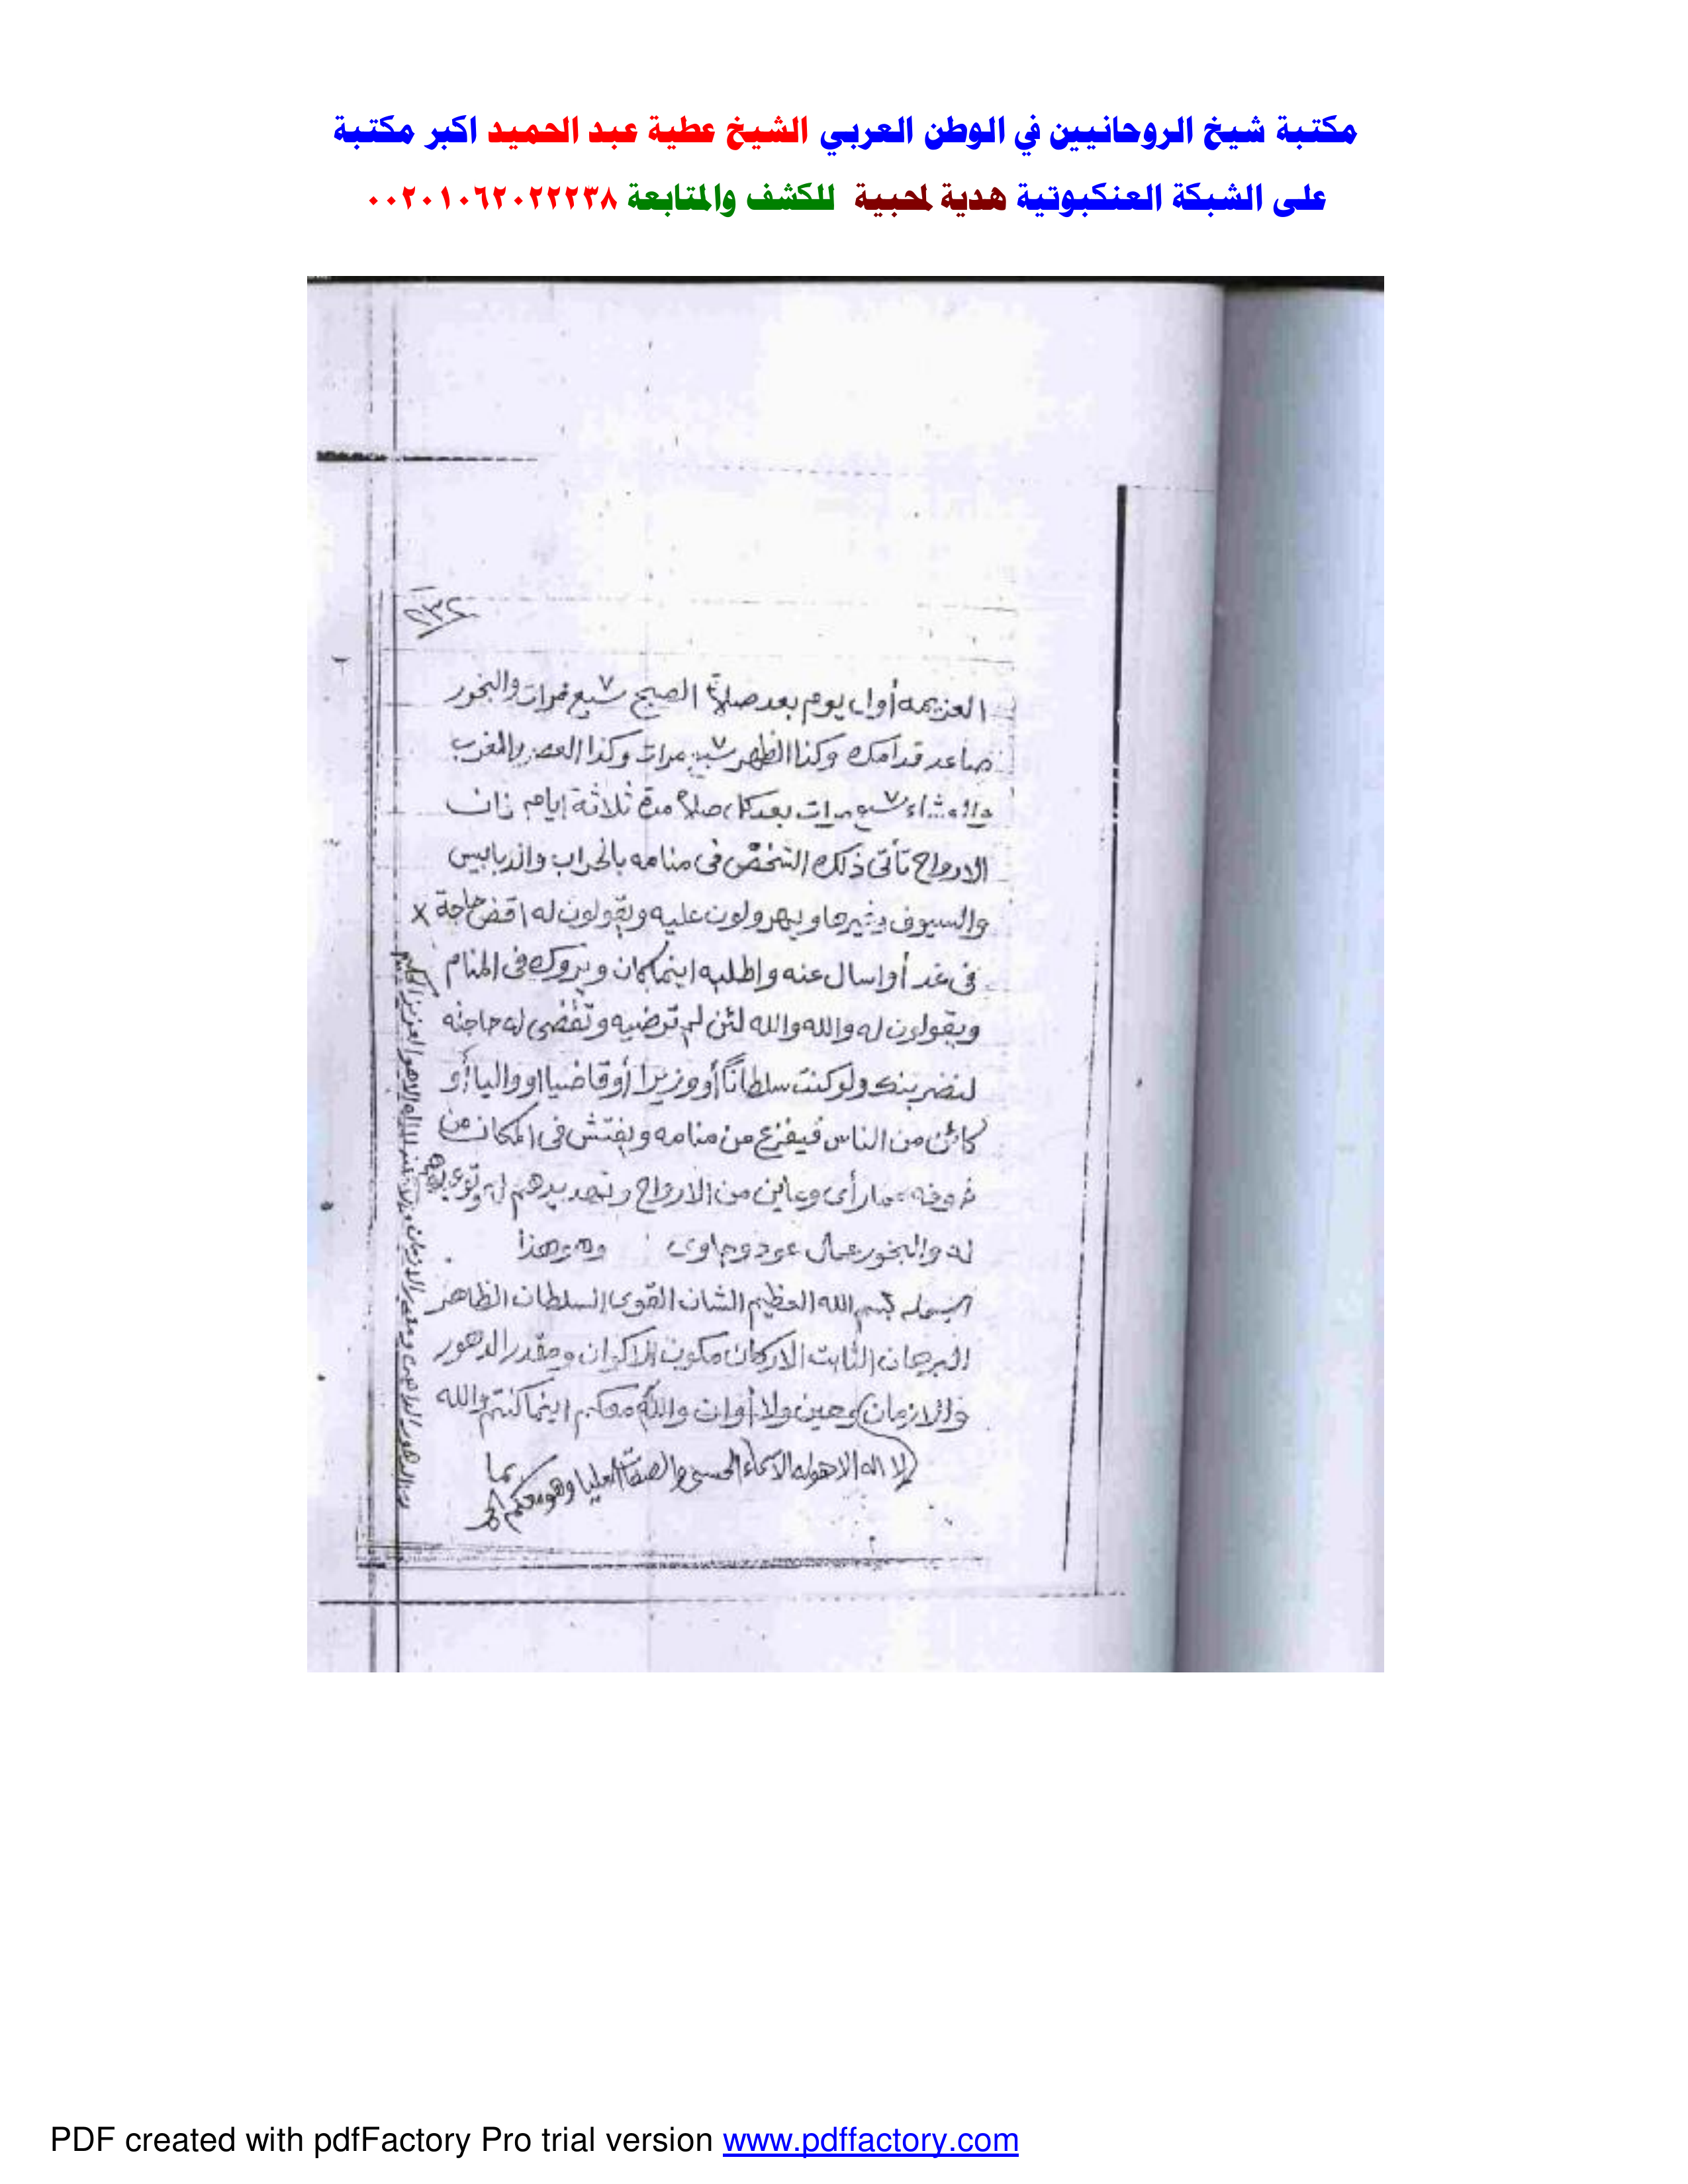 مكتبة شيخ الروحانيين في الوطن العربي الشيخ عطية عبد الحميد اكبر مكتبة
على الشبكة العنكبوتية هدية لمحبية للكشف والمتابعة ٠٠٢٠١٠٦٢٠٢٢٢٣٨
العزيمه أول يوم بعد صلاة الصبح سبع ٧ مرات والبخور
صاعد قدامك وكذا الظهر سبع ٧ مرات وكذا العصر والمغرب
والعشاء سبع ٧ مرات بعد كل صلاة مدة ثلاثة ايام فان
الارواح تأتى ذلك الشخص فى منامه بالحراب والدبابيس
والسيوف وغيرها ويهرولون عليه ويقولون له اقض حاجة x
فى غد أو اسال عنه واطلبه اينما كان ويروك فى المنام
ويقولون له والله والله لئن لم ترضيه وتقضى له حاجته
لنضربنك ولو كنت سلطاناً أو وزيرا أو قاضيا او واليا أو
كائن من الناس فيفزع من منامه ويفتش فى المكان من
خوفه مما رأى وعاين من الارواح وتهديدهم له
له والبخور عمال عود وجاوى وهو هذا
بسم الله العظيم الشان القوى السلطان الظاهر
البرهان الثابت الاركان مكون الاكوان ومقدر الدهور
والازمان وحين ولا أوان والله معكم اينما كنتم والله
لا اله الا هو له الاسماء الحسنى والصفات العليا وهو معكم
بما
لا اله الا هو العزيز الحكيم
PDF created with pdfFactory Pro trial version www.pdffactory.com